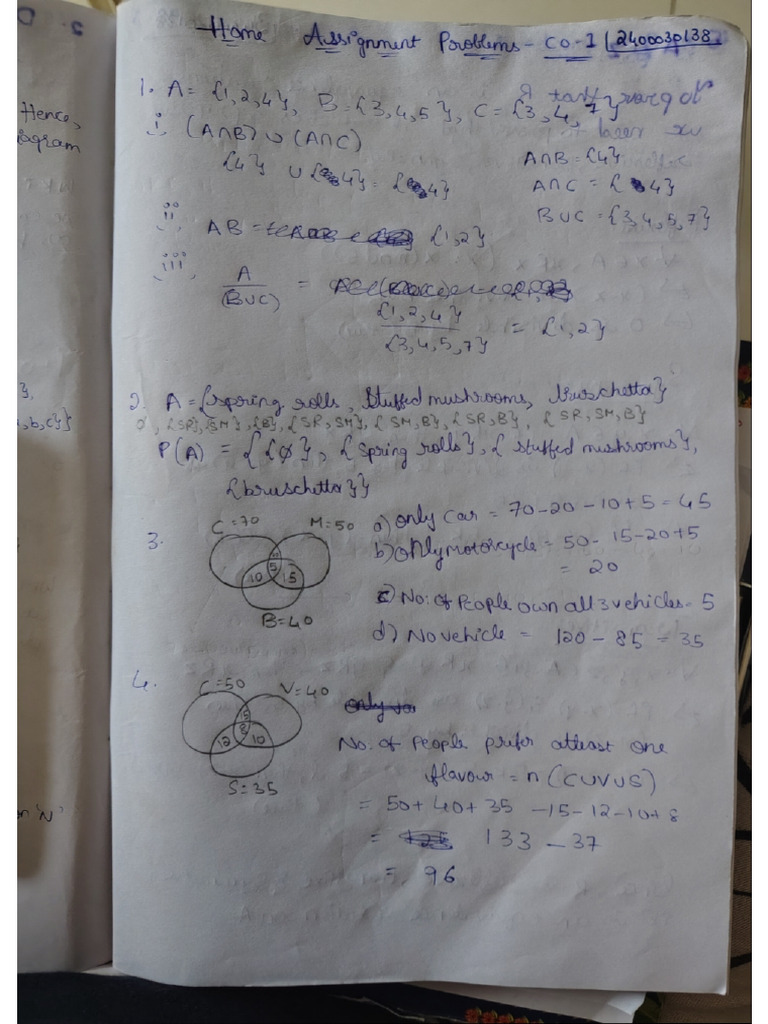 Home Assignment Problems - CO-1 240003P138
1. A = {1,2,4}, B = {3,4,5}, C = {3,4,7}
i (A∩B) ∪ (A∩C)
{4} ∪ {4} = {4}
A∩B = {4}
A∩C = {4}
B∪C = {3,4,5,7}
ii AB = {1,2}
iii A/(B∪C) =
{1,2,4}/{3,4,5,7} = {1,2}
2. A = {spring rolls, Stuffed mushrooms, bruschetta}
∅, {SR}, {SM}, {B}, {SR, SM}, {SM, B}, {SR, B}, {SR, SM, B}
P(A) = {{∅}, {spring rolls}, {stuffed mushrooms},
{bruschetta}}
3. C=70 M=50
5
10 15
B=40
a) only car = 70-20-10+5 = 45
b) only motorcycle = 50-15-20+5
= 20
c) No: of People own all 3 vehicles = 5
d) No vehicle = 120 - 85 = 35
4. C=50 V=40
15
8
12 10
S=35
No: of People prefer atleast one
flavour = n(C∪V∪S)
= 50+40+35 -15-12-10+8
= 133 - 37
= 96
Hence,
b,c}}
'N'